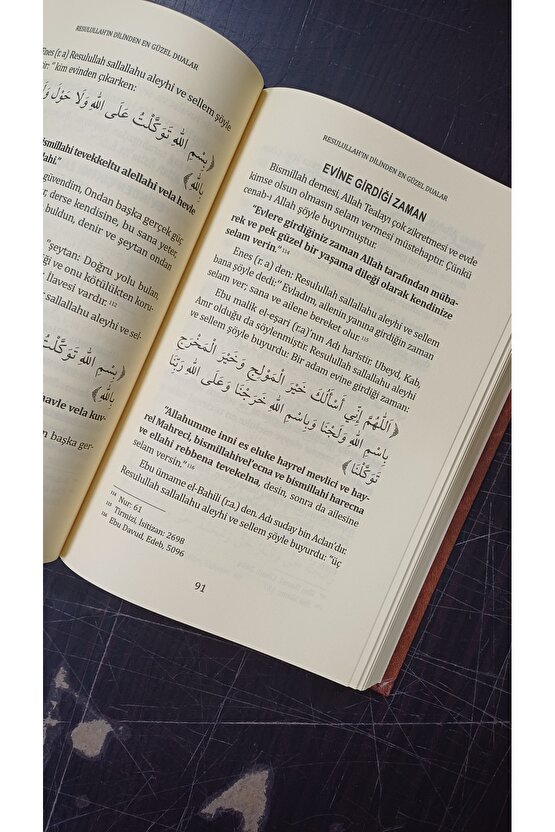 RESULULLAH'IN DİLİNDEN EN GÜZEL DUALAR
Enes (r.a) Resulullah sallallahu aleyhi ve sellem şöyle
"kim evinden çıkarken:
بِسْمِ اللَّهِ تَوَكَّلْتُ عَلَى اللَّهِ وَلَا حَوْلَ
بِاللَّهِ﴾
tevekkeltu alellahi vela havle
güvendim, Ondan başka gerçek güç
derse kendisine, bu sana yeter,
buldun, denir ve şeytan ondan
"şeytan: Doğru yolu bulan,
ve onu kötülükten koru-
İlavesi vardır.
aleyhi ve sel-
بِسْمِ اللَّهِ
بِاللَّهِ﴾
havle vela kuv-
başka ger-
RESULULLAH'IN DİLİNDEN EN GÜZEL DUALAR
EVİNE GİRDİĞİ ZAMAN
Bismillah demesi, Allah Tealayı çok zikretmesi ve evde
kimse olsun olmasın selam vermesi müstehaptır. Çünkü
cenab-ı Allah şöyle buyurmuştur.
"Evlere girdiğiniz zaman Allah tarafından müba-
rek ve pek güzel bir yaşama dileği olarak kendinize
selam verin." 114
Enes (r.a) den: Resulullah sallallahu aleyhi ve sellem
bana şöyle dedi:" Evladım, ailenin yanına girdiğin zaman
selam ver; sana ve ailene bereket olur. 115
Ebu malik el-eşari (r.a)'nın Adı haristir. Ubeyd, Kab,
Amr olduğu da söylenmiştir. Resulullah sallallahu aleyhi
ve sellem şöyle buyurdu: Bir adam evine girdiği zaman:
﴿اللَّهُمَّ إِنِّي أَسْأَلُكَ خَيْرَ الْمَوْلِجِ وَخَيْرَ الْمَخْرَجِ
بِاسْمِ اللَّهِ وَلَجْنَا وَبِاسْمِ اللَّهِ خَرَجْنَا وَعَلَى اللَّهِ رَبِّنَا
تَوَكَّلْنَا﴾
"Allahumme inni es eluke hayrel mevlici ve hay-
rel Mahreci, bismillahivel'ecna ve bismillahi harecna
ve ellahi rebbena tevekelna, desin, sonra da ailesine
selam versin." 116
Ebu ümame el-Bahili (r.a.) den. Adı suday bin Aclan'dır.
Resulullah sallallahu aleyhi ve sellem şöyle buyurdu: "üç
114 Nur: 61
115 Tirmizi, İsitizan: 2698
116 Ebu Davud, Edeb, 5096
91